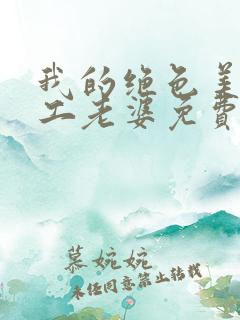 我的绝色美
工老婆免費
慕婉婉
未经同意禁止转载